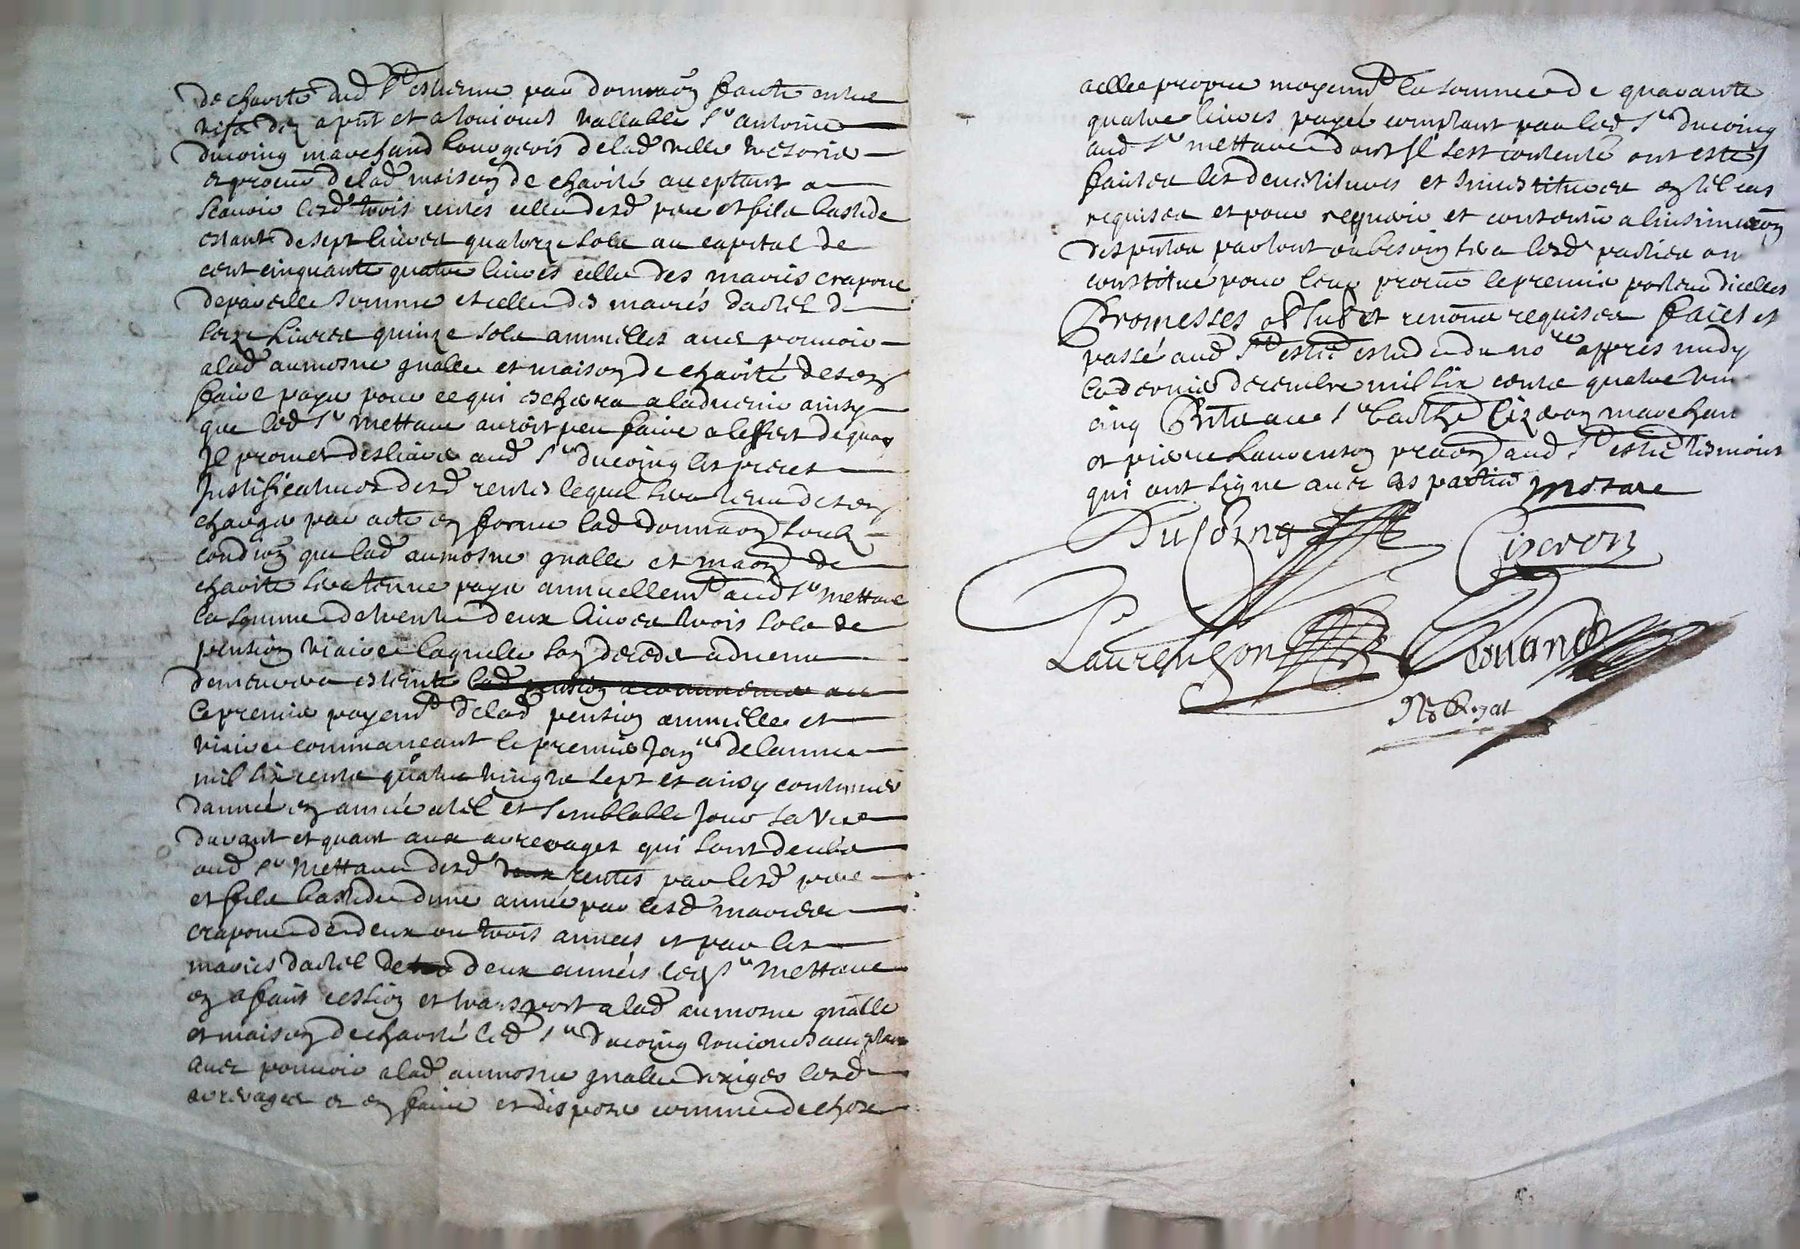 de charité dud St estienne par donnaon faicte entre
vifs des a pnt et a tousiours vallable Sr antoine
ducoing marchand bourgeois de lad ville
et procur de lad maison de charité acceptant
scavoir lesd trois rentes celle desd pere et fils bastide
estant de sept livres quatorze sols au capital de
cent cinquante quatre livres celle des maries crapone
de pareille somme et celle des mariés dachel de
seze livres quinze sols annuelles avec pouvoir
a lad aumosne gnalle et maison de charité de sen
faire payer pour ce qui eschera a ladvenir ainsy
que led Sr mettare auroit peu faire a leffect de quoy
Il promet deslivrer aud Sr ducoing les pieces
Justificatives desd rentes lequel sera tenu de sen
charger par acte en forme lad donnaon soubz
condion que lad aumosne gnalle et maon de
charité sera tenue payer annuellemt aud Sr mettare
la somme de trente deux livres trois sols de
pension viaire laquelle son deceds advenu
demeurera esteinte lad pension a commencer au
le premier payemt de lad pension annuelle et
viaire commancant le premier Janer de lannee
mil six cents quatre vingts sept et ainsy continuer
dannée en année a tel et semblable Jour sa vie
durant et quant aux arrerages qui sont deubs
aud Sr Mettare desd deux rentes par lesd pere
et fils bastide dune année par lesd maries
crapone de deux ou trois annees et par les
maries dachel de deux années led Sr Mettare
en a fait cession et transport a lad aumosne gnalle
et maison de charité led Sr ducoing tousiours acceptant
avec pouvoir a lad aumosne gnalle dexiger lesd
arrerages et en faire et disposer comme de chose
a elle propre moyent la somme de quarante
quatre livres payé comptant par led Sr ducoing
aud Sr mettare dont Il sest contenté ont estés
faictes les devestitures et Investitures en tel cas
requises et pour requerir et consentir a linsinuaon
des pntes partout ou besoin sera lesd parties ont
constitué pour leur procur le premier porteur dicelles
Promesses obl sub et renona requises faict et
passé aud St estie estude du nore appres midy
le dernier decembre mil six cents quatre vin
cinq Pnts a ce Sr barthe Cizeron marchan
et pierre Laurenson praon aud St estie tesmoins
qui ont signé avec les parties mettare
Ducoing Cizeron
Laurenson
Nore Royal